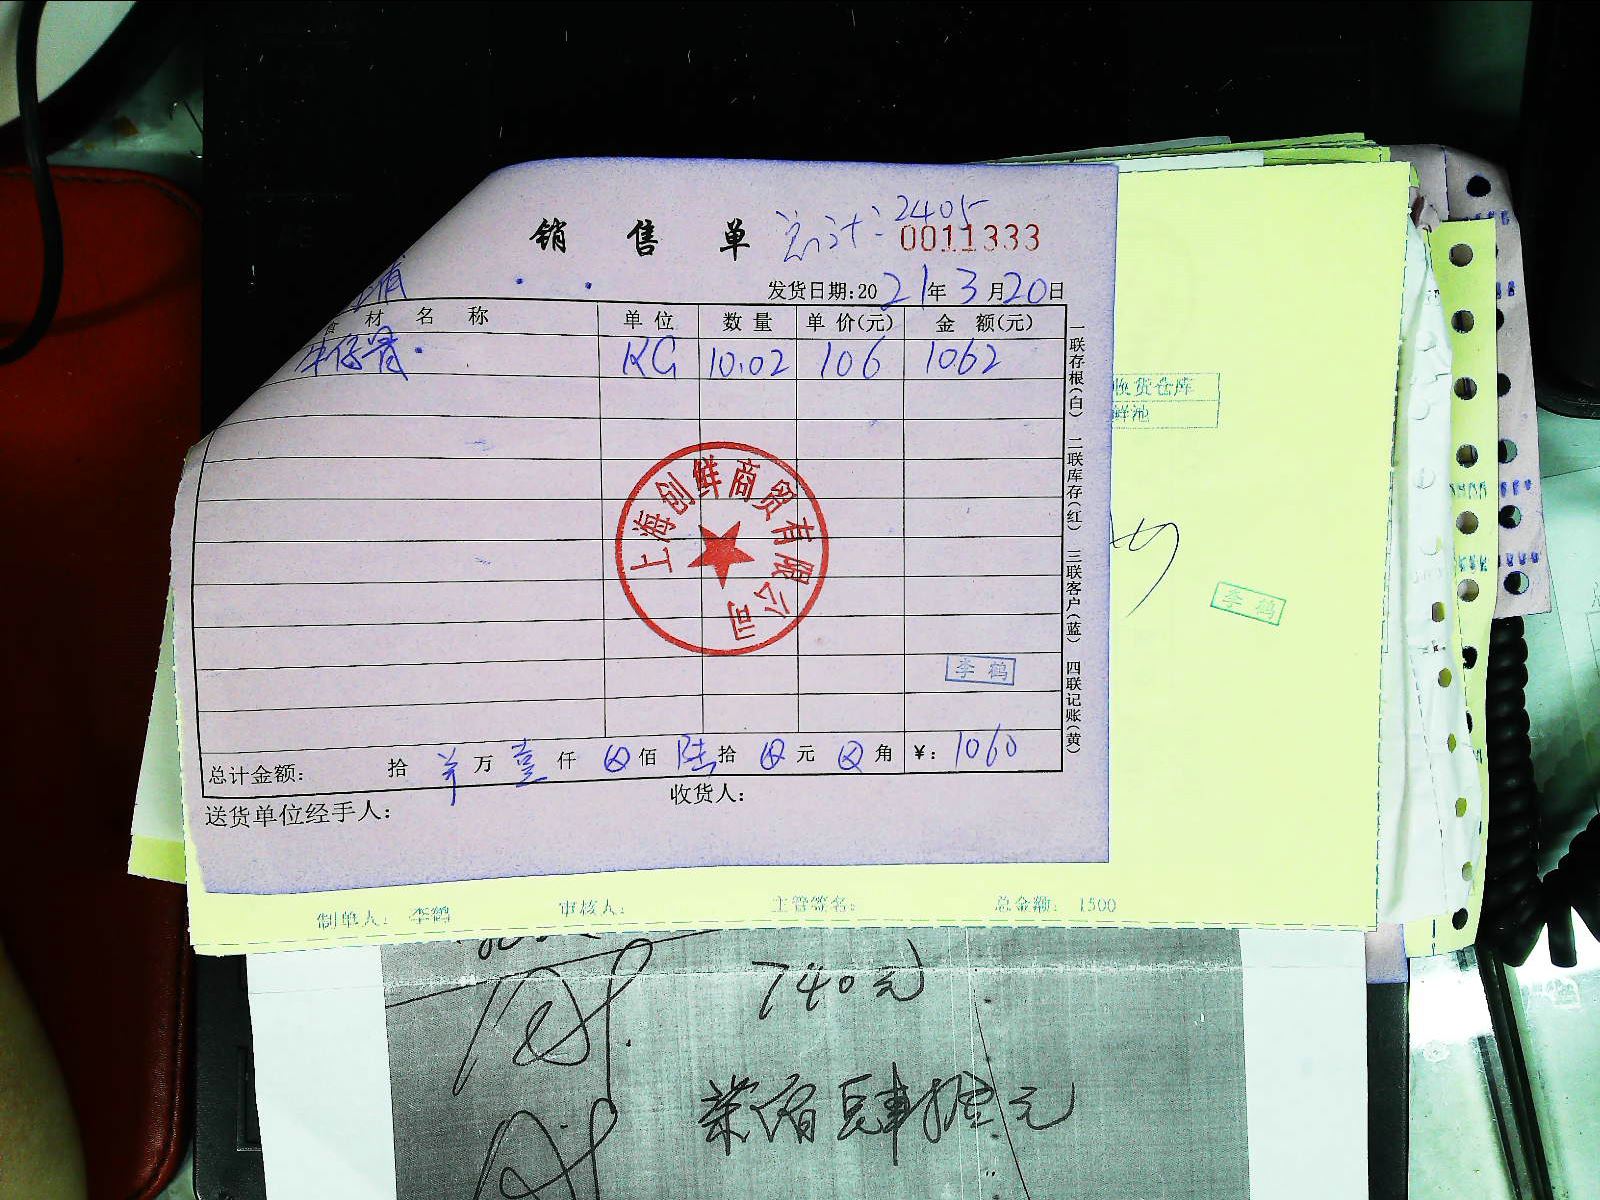 销 售 单 总计: 2405
0011333
发货日期:2021年3月20日
材 名 称 单位 数量 单价(元) 金 额(元)
牛仔骨 KG 10.02 106 1062
一联存根(白) 二联库存(红) 三联客户(蓝) 四联记账(黄)
上海创鲜商贸有限公司
李鹤
总计金额: 拾 万 壹 仟 佰 陆 拾 元 角 ¥: 1060
送货单位经手人: 收货人:
收货仓库
鲜池
李鹤
制单人: 李鹤 审核人: 主管签名: 总金额: 1500
740元
柒佰肆拾元